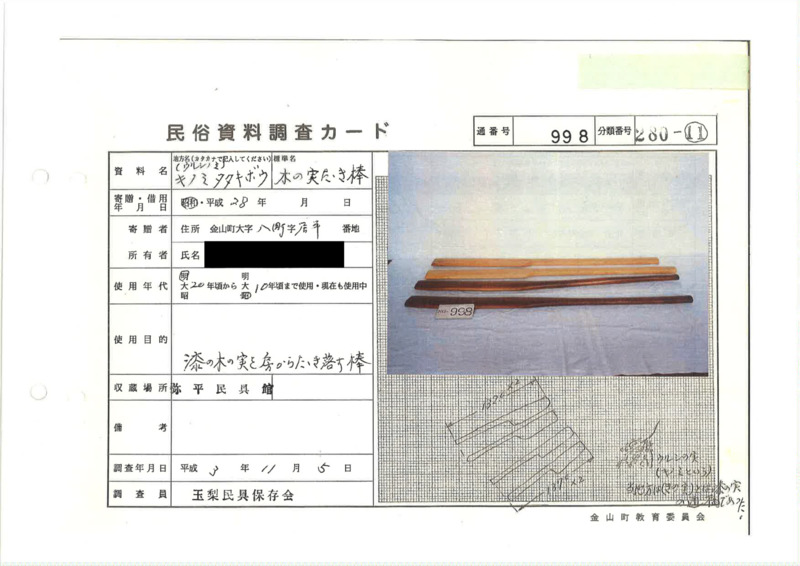 民俗資料調査カード
通番号 998 分類番号 280-⑪
資料名
地方名(カタカナで記入してください) 標準名
(ウルシノミ)
キノミタタキボウ 木の実たたき棒
寄贈・借用年月日 昭和・平成 28年 月 日
寄贈者 住所 金山町大字八町字居平 番地
所有者 氏名
使用年代 明大昭 20年頃から 明大昭 10年頃まで使用・現在も使用中
使用目的
漆の木の実を房からたたき落す棒
収蔵場所 弥平民具館
備考
調査年月日 平成 3年 11月 5日
調査員 玉梨民具保存会
998
137cm×2
137cm×2
ウルシの実
(キノミという)
金山町教育委員会